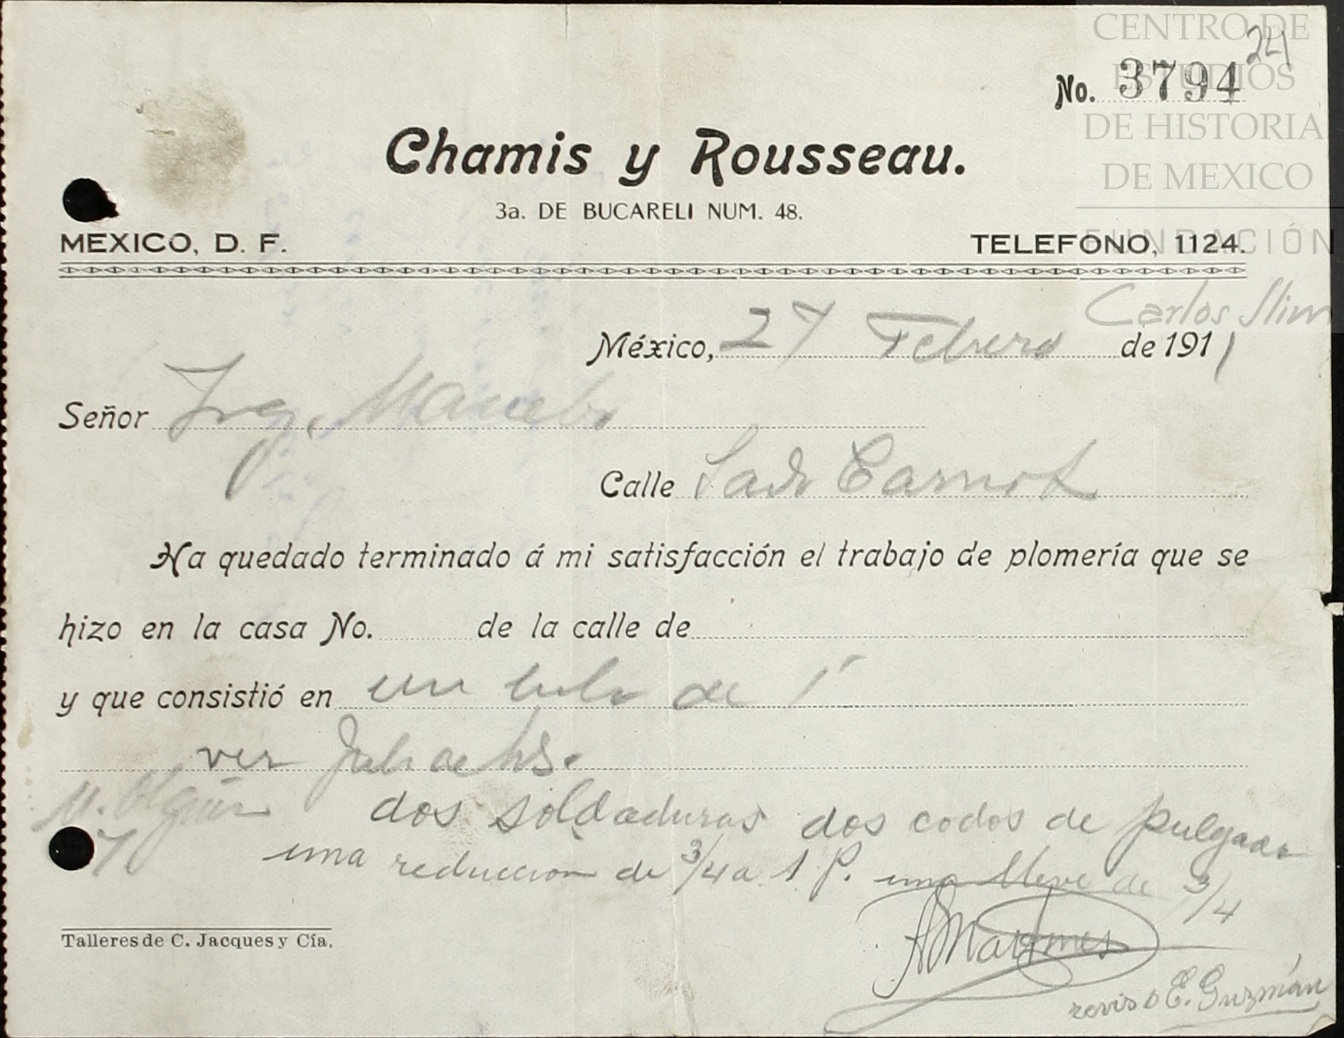 CENTRO DE
ESTUDIOS
DE HISTORIA
DE MEXICO
FUNDACIÓN
Carlos Slim
24
No. 3794
Chamis y Rousseau.
3a. DE BUCARELI NUM. 48.
MEXICO, D. F. TELEFONO, 1124.
México, 27 Febrero de 1911
Señor Ing.
Calle Sadi Carnot
Ha quedado terminado á mi satisfacción el trabajo de plomería que se
hizo en la casa No. de la calle de
y que consistió en un tubo de 1"
ver
M. Olguin dos soldaduras dos codos de pulgada
una reduccion de 3/4 a 1 p. una lleve de 3/4
Talleres de C. Jacques y Cía.
revisó E. Guzmán